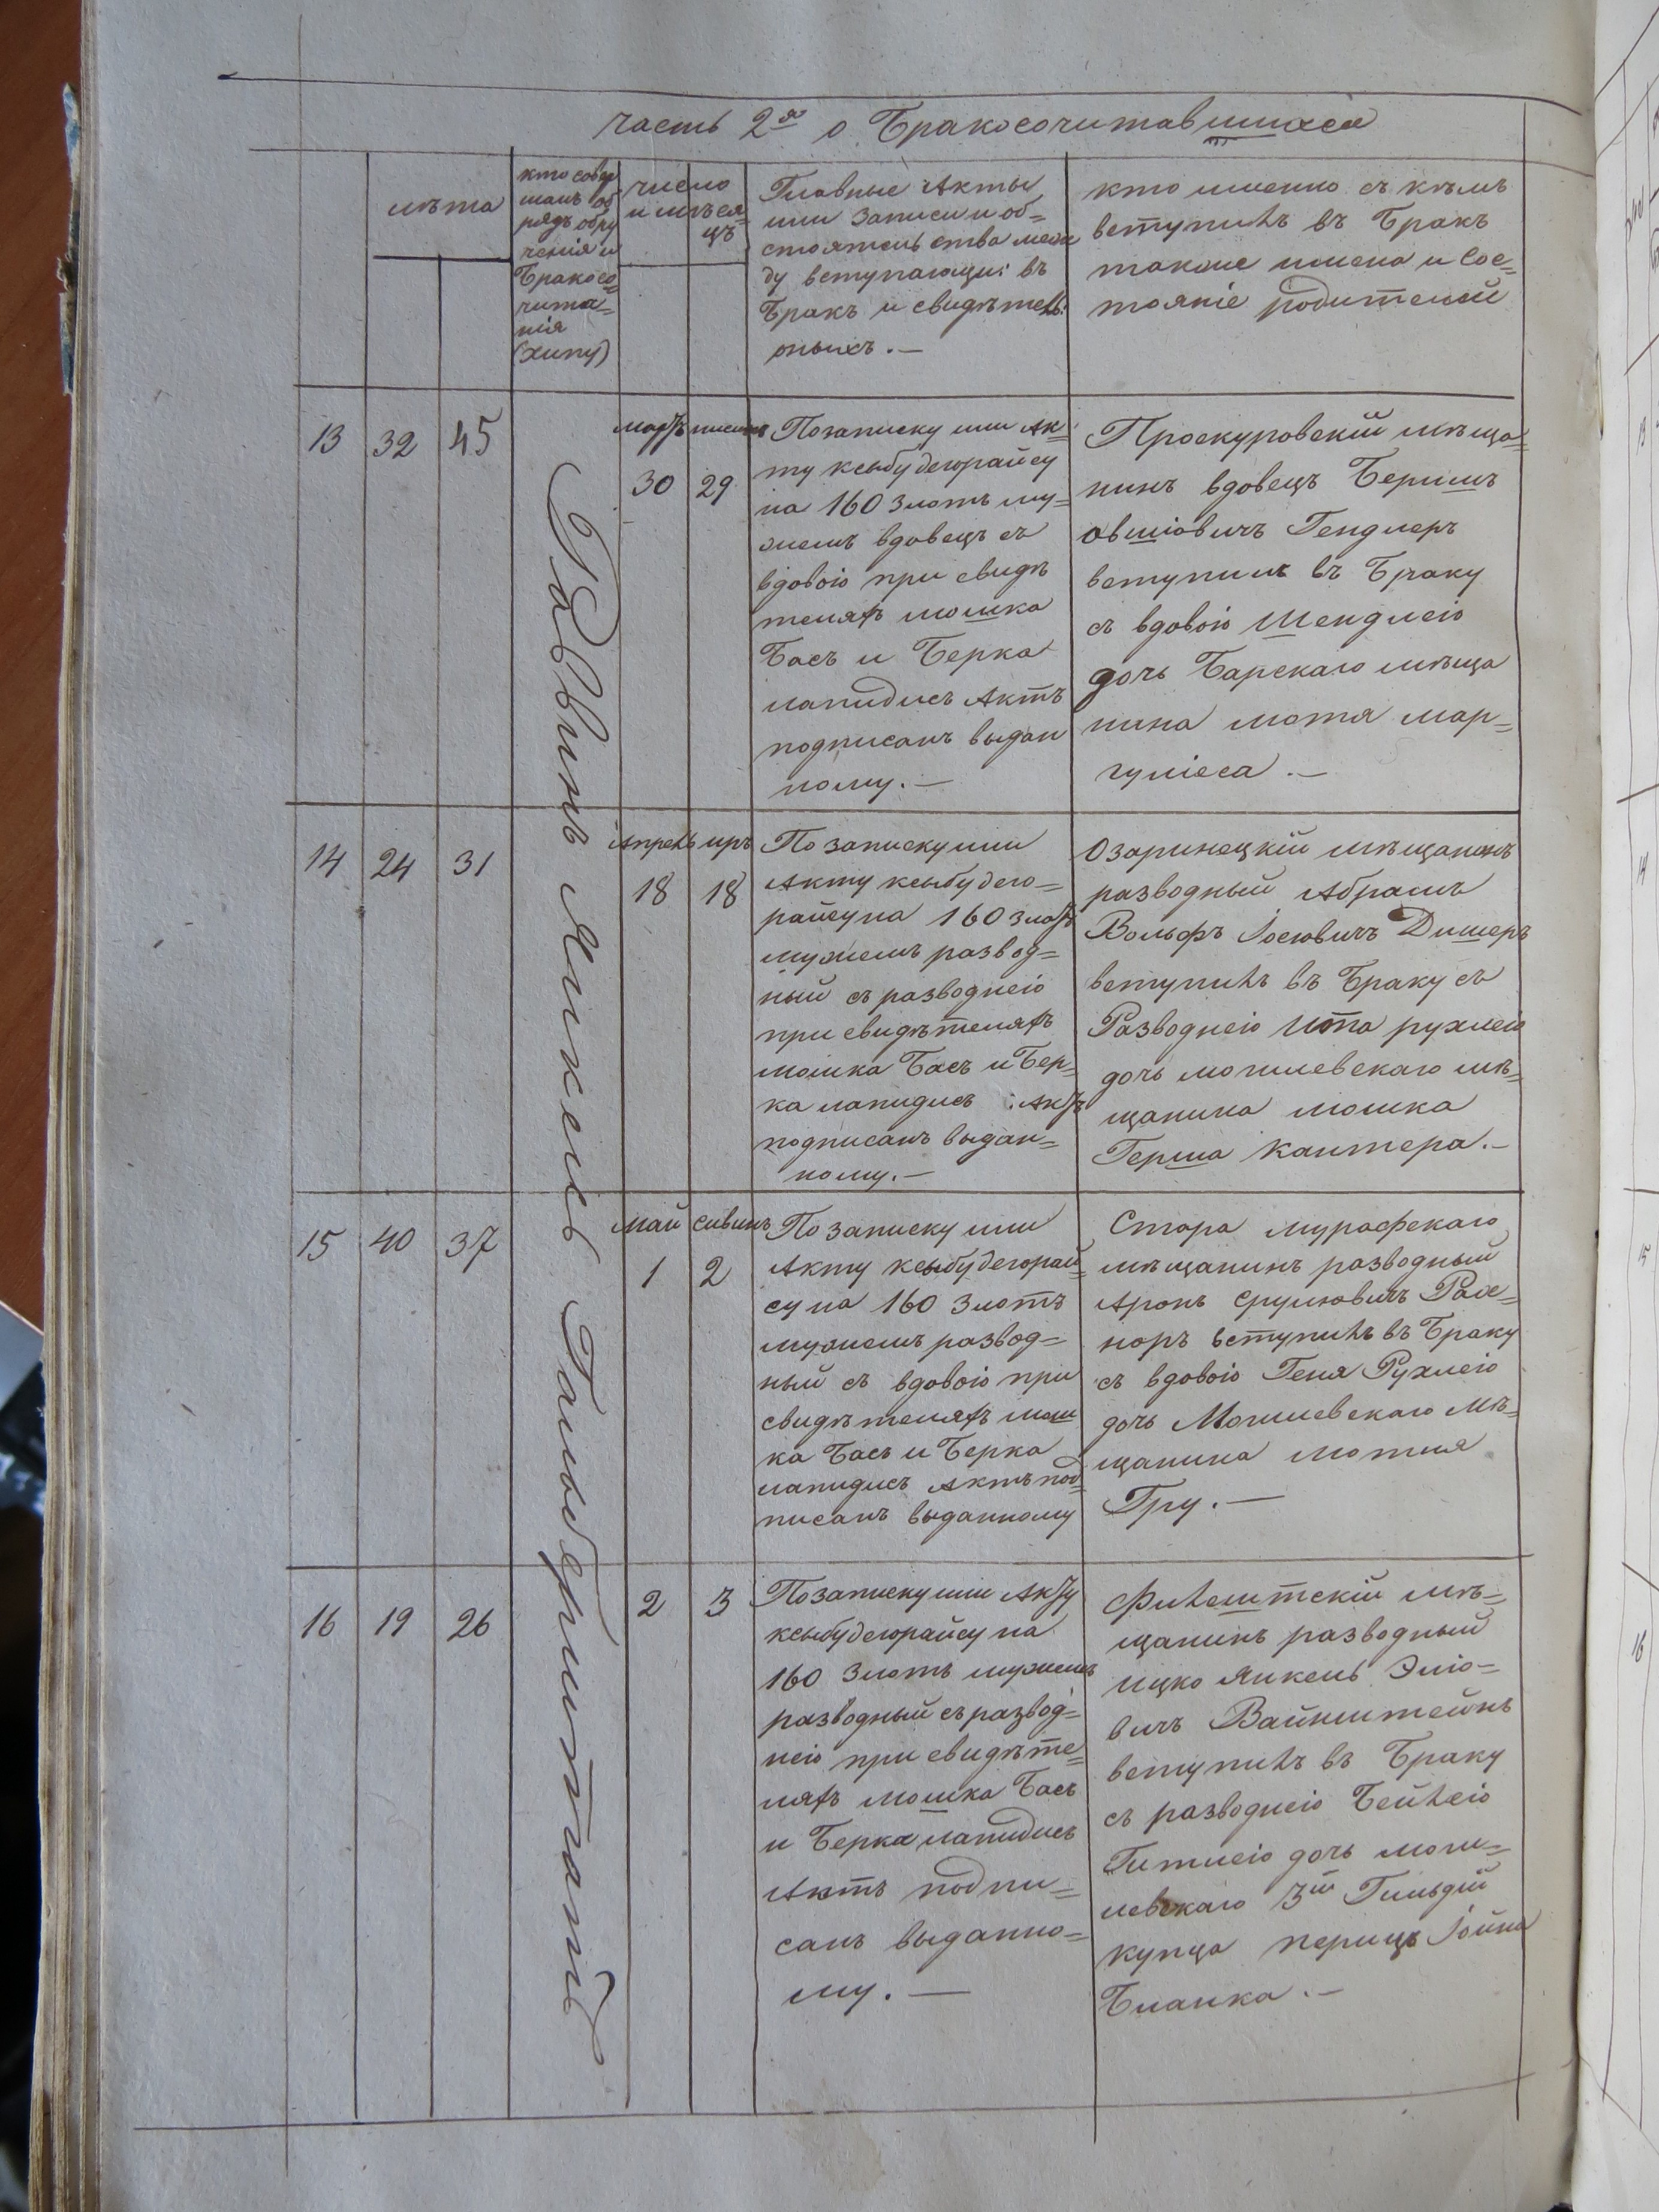 Часть 2я о Бракосочитавшихся
лѣта
кто совер
шалъ об
рядъ обру
ченія и
Бракосо=
чита=
нія
(хипу)
число
и мѣся=
цъ
Главные Акты
или Записи и об=
стоятельства меж
ду вступающи: въ
Бракъ и свидѣтель:
оныхъ.—
кто именно съ кѣмъ
вступилъ въ Бракъ
также имена и Сос=
тояніе родителей
13 32 45
Мартъ нисанъ
30 29
Позаписку или Ак=
ту ксыбудеюрайсу
на 160 Злотъ му=
жемъ вдовецъ съ
вдовою при свидѣ
теляхъ мошка
Басъ и Берка
лапидисъ Актъ
подписанъ выдан
ному.—
Проскуровскій мѣща=
нинъ вдовецъ Беришъ
овшіовичъ Гендлеръ
вступилъ въ Браку
съ вдовою Шендлею
дочь Барскаго мѣща
нина мотя мар=
гуліеса.—
14 24 31
Апрель иръ
18 18
По записку или
Акту ксыбудею=
райсуна 160 злотъ
мужемъ развод=
ный съ разводнею
при свидѣтеляхъ
мошка Басъ и Бер=
ка лапидисъ : Актъ
подписанъ выдан=
ному.—
Озаринецкій мѣщанинъ
разводный Абрамъ
Вольфъ Іосіовичъ Дишеръ
вступилъ въ Браку съ
Разводнею Ита рухлею
дочь могилевскаго мѣ=
щанина мошка
Герша Кантера.—
15 40 37
Май сивинъ
1 2
По записку или
Акту ксыбудеюрай=
суна 160 Злотъ
мужемъ развод=
ный съ вдовою при
свидѣтеляхъ мош
ка Басъ и Берка
лапидисъ Актъ под=
писанъ выданному
Стара мурафскаго
мѣщанинъ разводный
Аронъ Срулювичъ Рах=
норъ вступилъ въ Браку
съ вдовою Геня Рухлею
дочь Могилевскаго Мѣ=
щанина мотля
Гру.—
16 19 26
2 3
Позаписку или Акту
ксыбудеюрайсу на
160 Злотъ мужемъ
разводный съ развод=
нею при свидѣте=
ляхъ мошка Басъ
и Берка лапидисъ
Актъ подпи=
санъ выданно=
му.—
Филештскій мѣ=
щанинъ разводный
ицко Янкель Эліо=
вичъ Вайнштейнъ
вступилъ въ Браку
съ разводнею Бейлею
Гитлею дочь моги=
левскаго 3й Гильдій
купца перицъ Іойна
Бланка.—
Раввинъ Янкель Гальберштатъ